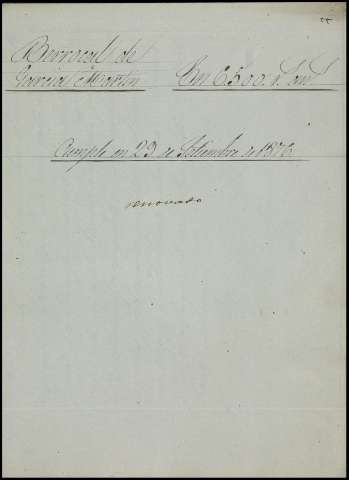 Berrocal de
Garcia Martin En 6500 r.
Cumple en 29 de Setiembre de 1876
renovado